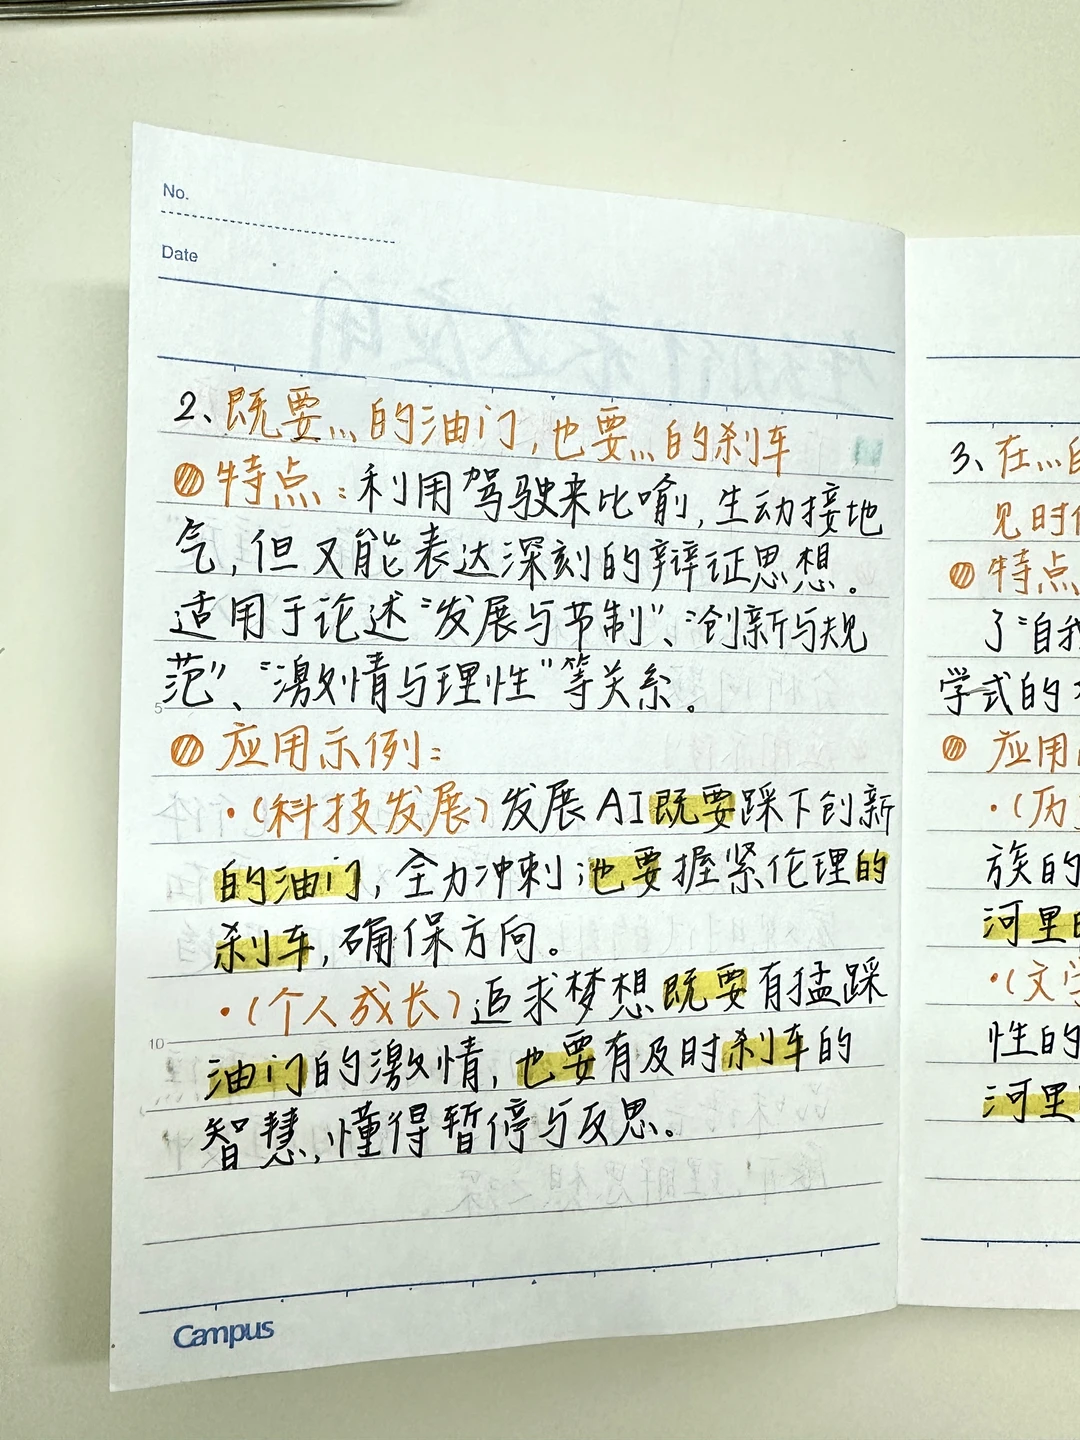 No.
Date
2、既要…的油门,也要…的刹车
特点:利用驾驶来比喻,生动接地
气,但又能表达深刻的辩证思想。
适用于论述“发展与节制”、“创新与规
范”、“激情与理性”等关系。
5
应用示例:
·(科技发展)发展AI既要踩下创新
的油门,全力冲刺;也要握紧伦理的
刹车,确保方向。
·(个人成长)追求梦想既要有猛踩
10
油门的激情,也要有及时刹车的
智慧,懂得暂停与反思。
Campus
3、在…的
见时
特点
了“自我
学式的
应用
·(历
族的
河里的
·(文学
性的
河里